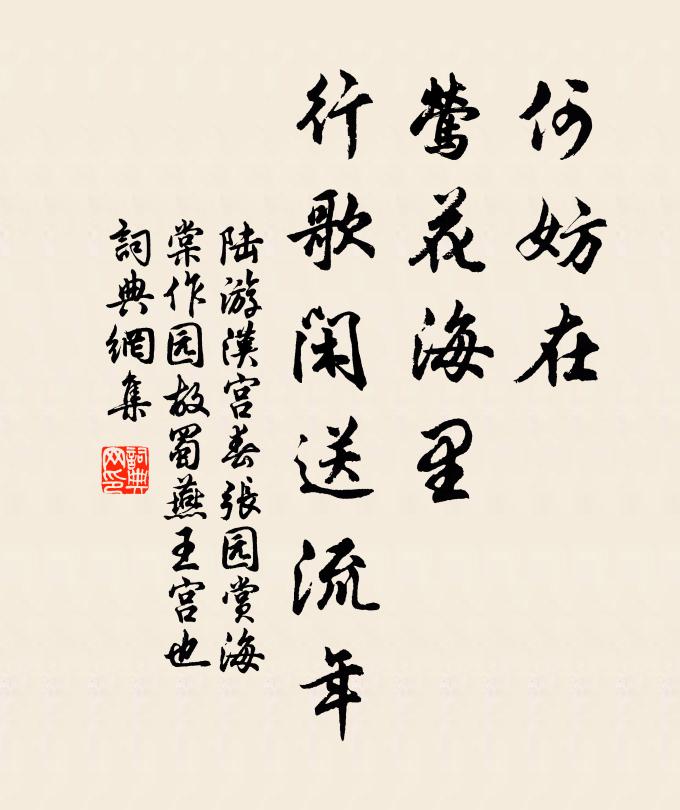 何妨在
莺花海里
行歌闲送流年
陆游漢宫春張园赏海
棠作园故蜀燕王宫也
詞典網集
詞典网印